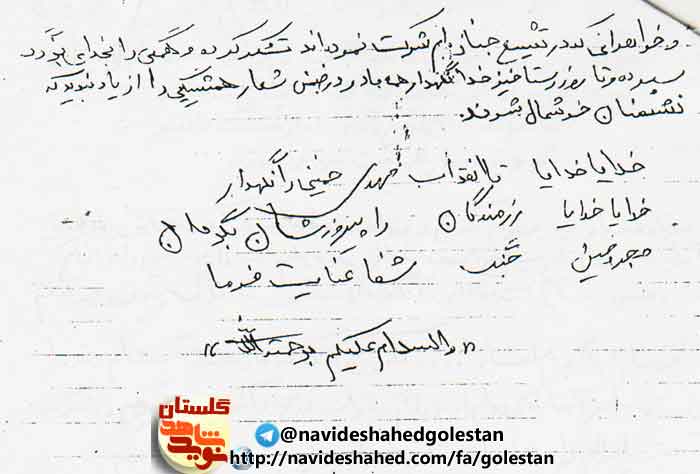 و خواهرانی که در تشییع جنازه‌ام شرکت نموده‌اند تشکر کرده و همگی را بخدای بزرگ
سپرده و تا روز رستاخیز خدانگهدار همه باد و در ضمن شعار همیشگی را از یاد نبرید که
دشمنان خوشحال بشوند.
خدایا خدایا تا انقلاب مهدی خمینی را نگهدار
خدایا خدایا رزمندگان را پیروزشان بگردان
مجروحین جنگ شفا عنایت فرما
«والسلام علیکم و رحمته الله»
گلستان
نوید شاهد
@navideshahedgolestan
http://navideshahed.com/fa/golestan